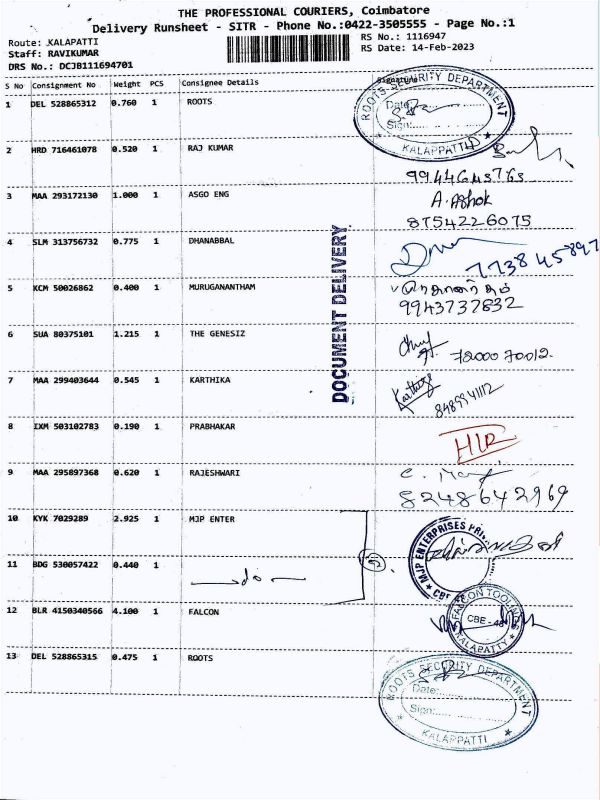 THE PROFESSIONAL COURIERS, Coimbatore
Delivery Runsheet - SITR - Phone No.:0422-3505555 - Page No.:1
Route: KALAPATTI
RS No.: 1116947
Staff: RAVIKUMAR
RS Date: 14-Feb-2023
DRS No.: DCJB111694701
S No Consignment No Weight PCS Consignee Details Signature
1 DEL 528865312 0.760 1 ROOTS
ROOTS SECURITY DEPARTMENT
Date:
Sign:
KALAPPATTI
2 HRD 716461078 0.520 1 RAJ KUMAR
3 MAA 293172130 1.000 1 ASGO ENG
A. Ashok
8754226075
4 SLM 313756732 0.775 1 DHANABBAL
773845897
5 KCM 50026862 0.400 1 MURUGANANTHAM
9943737832
DOCUMENT DELIVERY
6 SUA 80375101 1.215 1 THE GENESIZ
72000 70012.
7 MAA 299403644 0.545 1 KARTHIKA
8489941112
8 IXM 503102783 0.190 1 PRABHAKAR
9 MAA 295897368 0.620 1 RAJESHWARI
8248642969
10 KYK 7029289 2.925 1 MJP ENTER
MJP ENTERPRISES
CBE
11 BDG 530057422 0.440 1
do
12 BLR 4150340566 4.100 1 FALCON
FALCON
CBE - 48
KALAPATTY
13 DEL 528865315 0.475 1 ROOTS
ROOTS SECURITY DEPARTMENT
Date:
Sign:
KALAPATTI